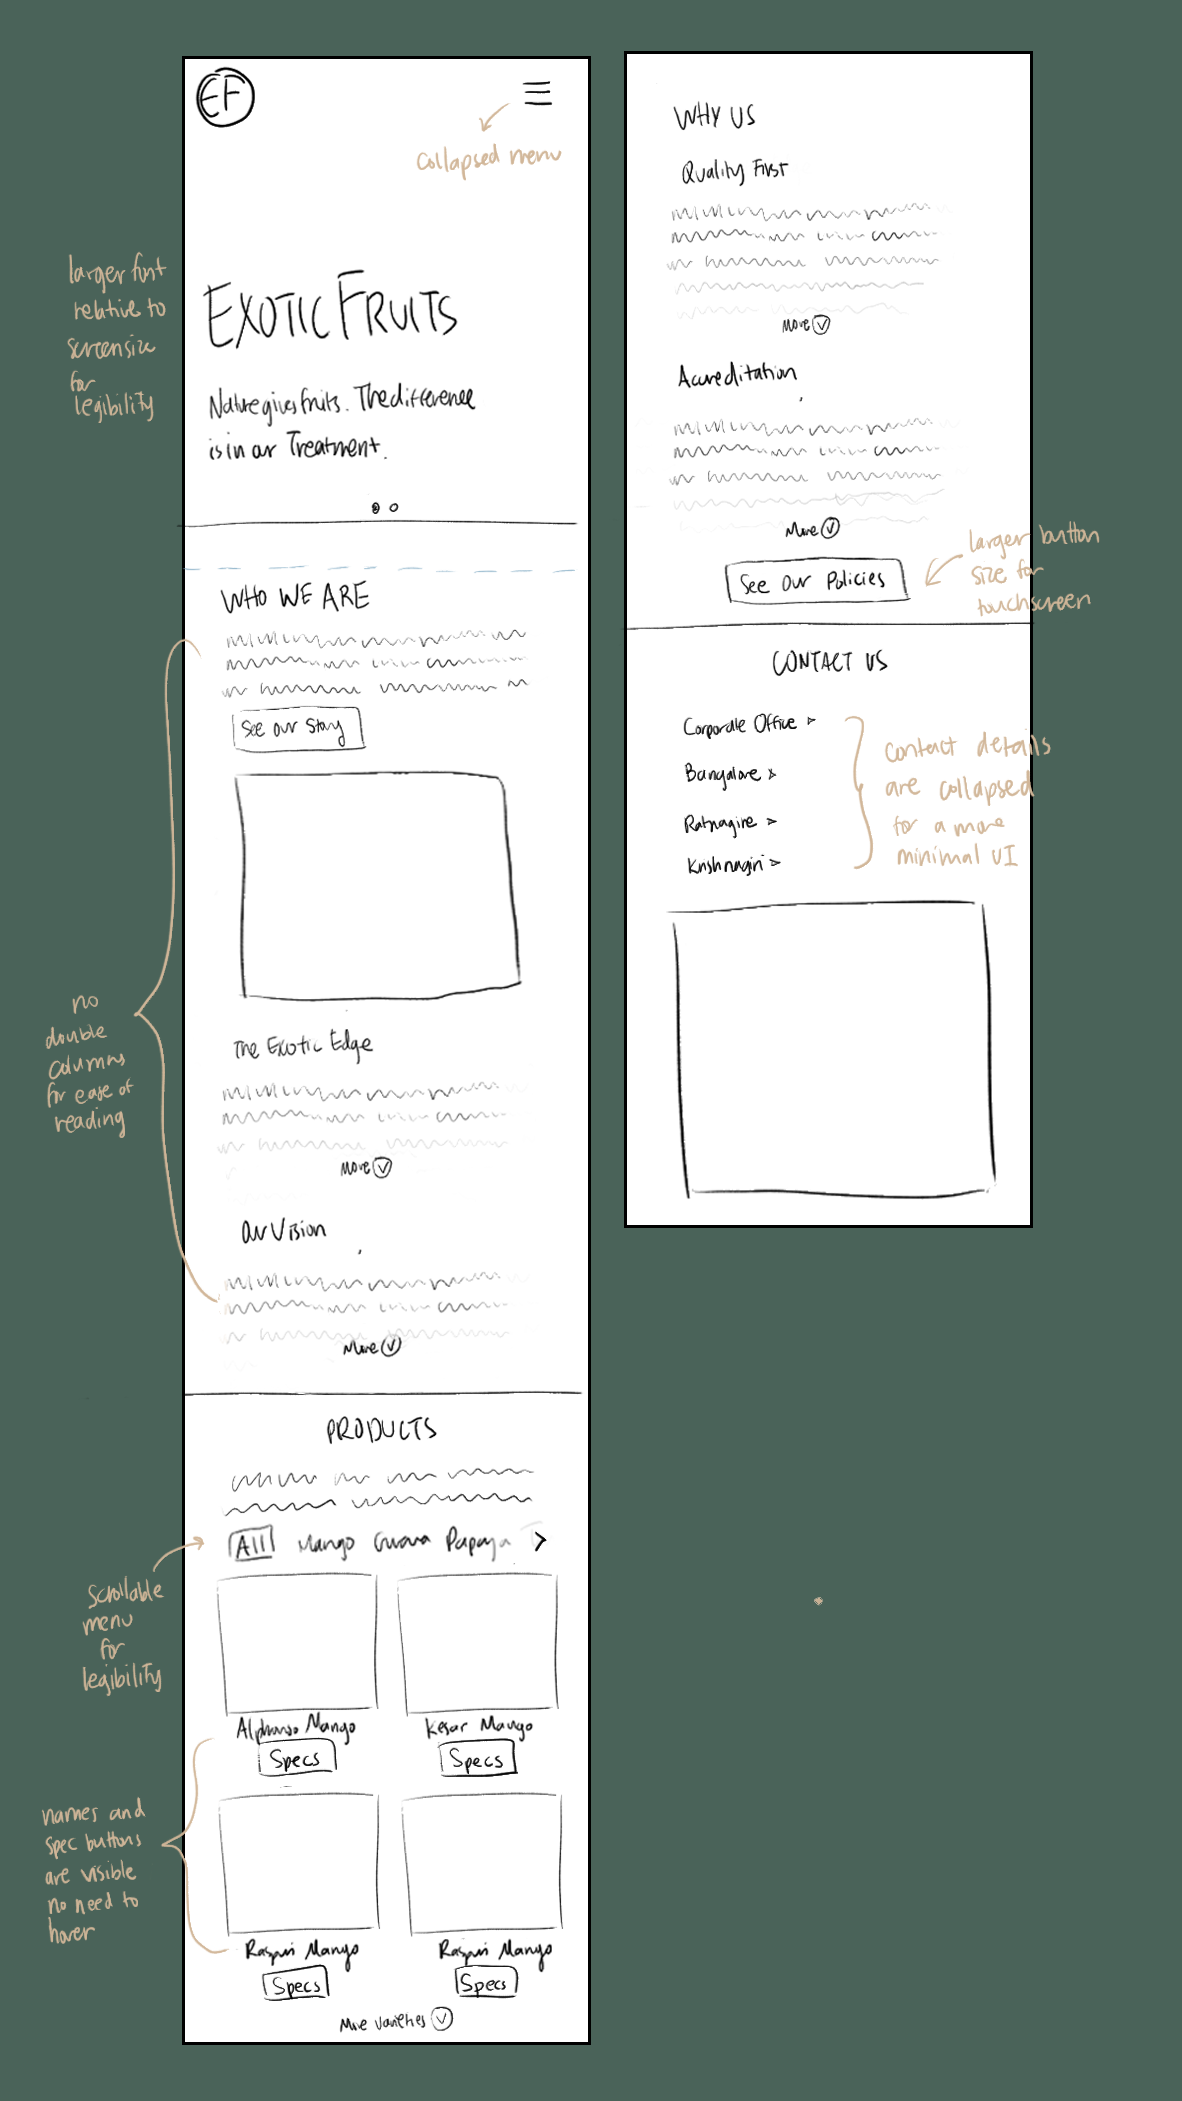 EF
collapsed menu
larger font
relative to
screensize
for
legibility
EXOTIC FRUITS
Nature gives fruits. The difference
is in our Treatment.
WHO WE ARE
See our Story
no
double
columns
for ease of
reading
The Exotic Edge
More
Our Vision
More
PRODUCTS
All Mango Guava Papaya T >
scrollable
menu
for
legibility
Alphonso Mango Kesar Mango
Specs Specs
names and
spec buttons
are visible
no need to
hover
Raspuri Mango Raspuri Mango
Specs Specs
More varieties
WHY US
Quality First
More
Accreditation
More
See Our Policies
larger button
size for
touchscreen
CONTACT US
Corporate Office
Bangalore
Ratnagire
Krishnagiri
contact details
are collapsed
for a more
minimal UI